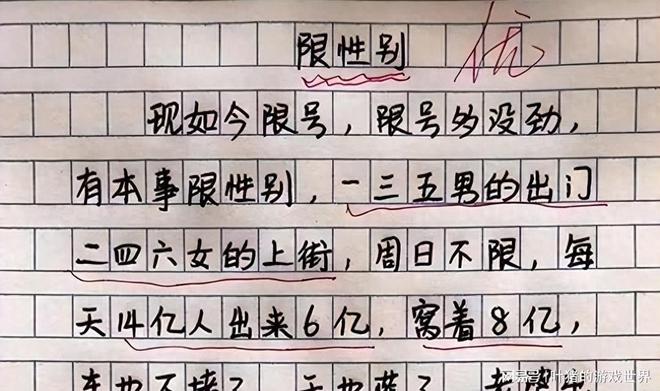 限性别 优
现如今限号，限号多没劲，
有本事限性别，一三五男的出门
二四六女的上街，周日不限，每
天14亿人出来6亿，窝着8亿，
车也不堵了，天也蓝了，
搜狐号@叶猪的游戏世界